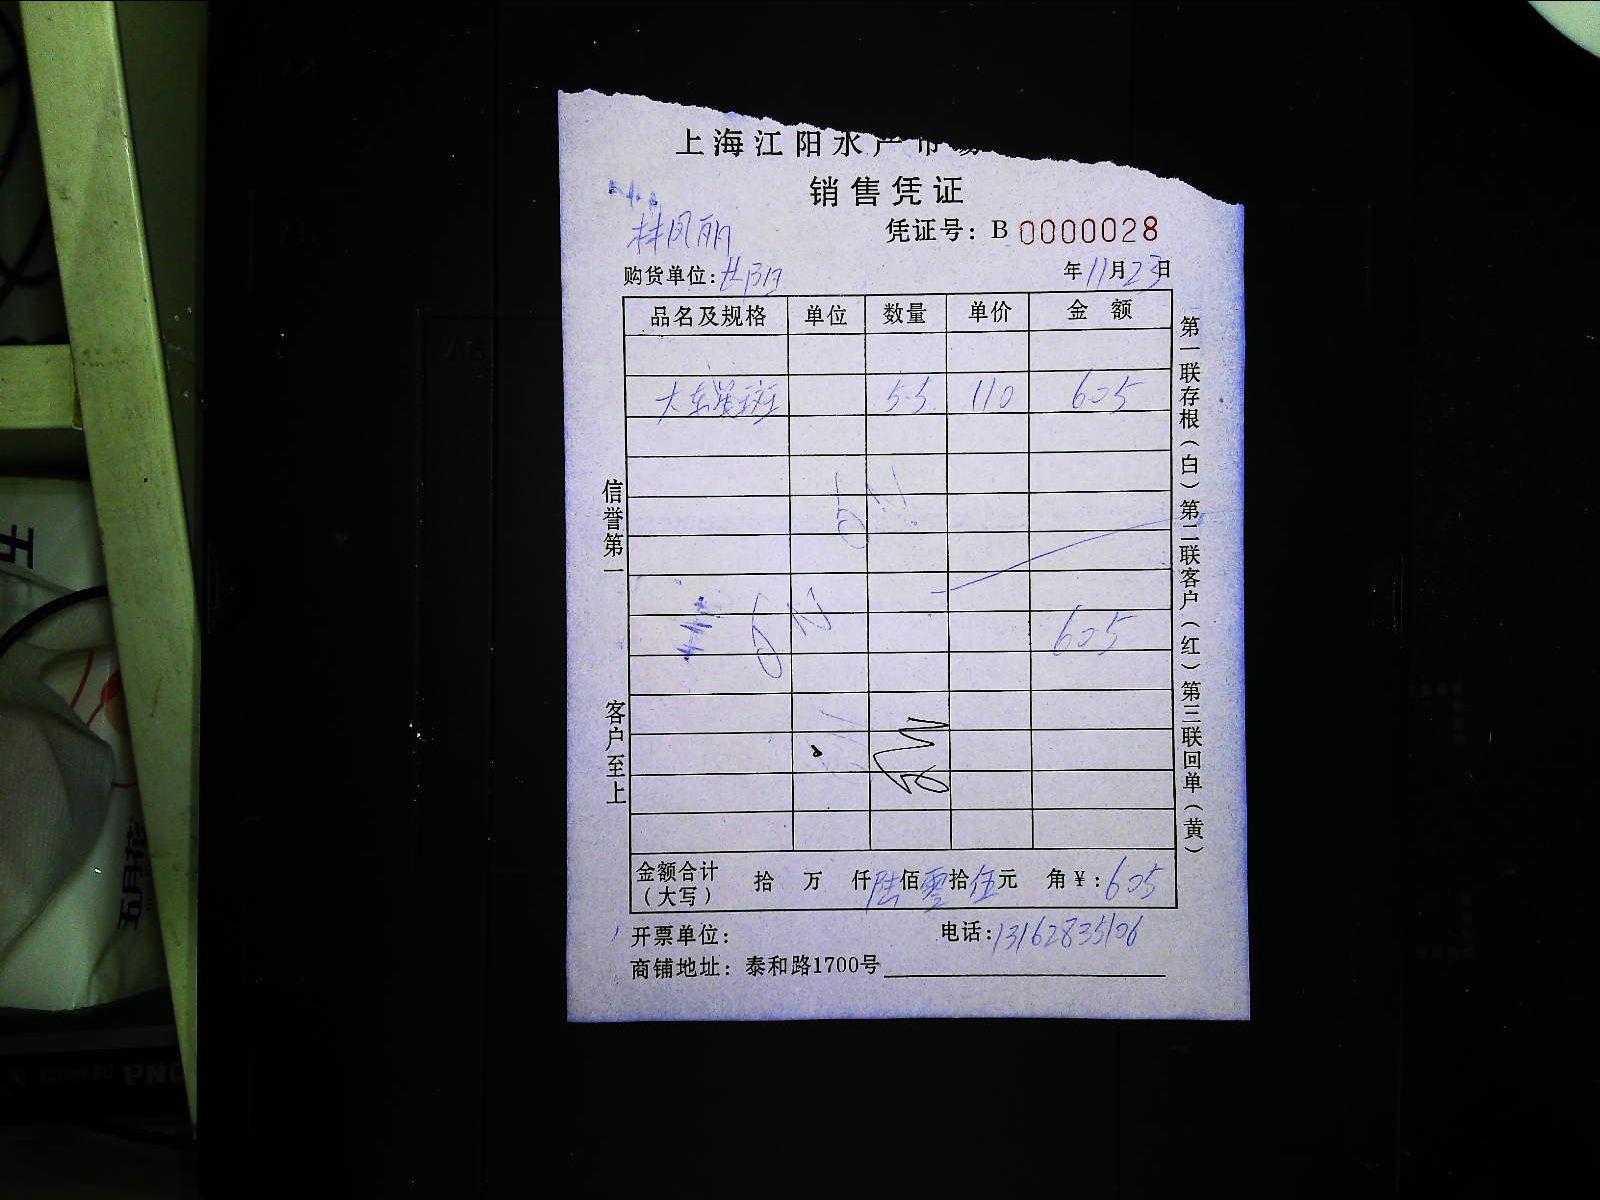 上海江阳水产市场
销售凭证
林凤丽
凭证号：B 0000028
购货单位：世明
年11月23日
品名及规格 单位 数量 单价 金 额
大东星斑 5.5 110 605
605
金额合计（大写） 拾 万 仟陆佰零拾伍元 角￥：605
开票单位：
电话：13162835106
商铺地址：泰和路1700号
信誉第一
客户至上
第一联存根（白）第二联客户（红）第三联回单（黄）
五
五月花